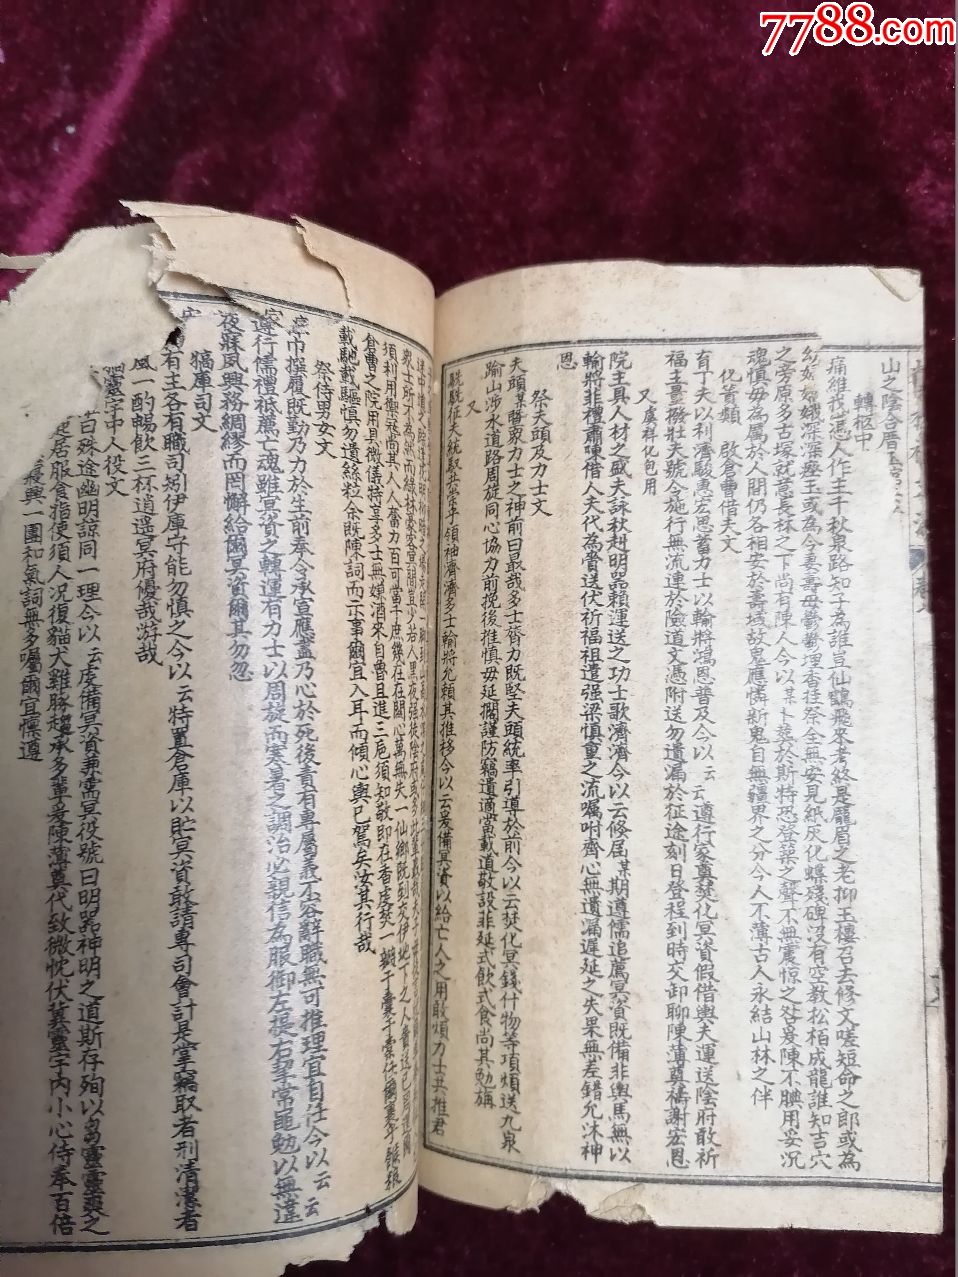 7788.com
山之陰合厝
轉柩中
痛維我憑人作主千秋泉路知子為誰豈仙鶴飛來考終是龐眉之老抑玉樓召去修文嗟短命之郎或為
深深瘞玉或為今妻壽母鬱鬱埋香佳祭全無安見紙灰化蝶殘碑沒有空教松栢成龍誰知吉穴
之旁原多古塚就慈長林之下尚有陳人今以某卜葬於斯特恐登築之聲不無震惊之咎爰陳不腆用妥沉
魂慎毋為厲於人間仍各相安於壽域故鬼應憐新鬼自無疆界之分今人不薄古人永結山林之伴
化首類 啟倉曹借夫文
有丁夫以利濟駿惠宏恩蓄力士以輸將鴻恩普及今以云云遵行家奠焚化冥資假借輿夫運送陰府敢祈
福主臺撥壯夫號令施行無流連於險道文憑附送勿遺漏於征途刻日登程到時交卸聊陳薄奠禱謝宏恩
又 虞科化包用
院主具人材之盛夫詠秋赳明器賴運送之功士歌濟濟今以云修屆某期遵儒追薦冥資既備非輿馬無以
輸將非禮肅陳借人夫代為賞送伏祈福祖遣强梁慎重之流嘱咐齊心無遺漏遲延之失果無差錯允沐神
恩
祭夫頭及力士文
夫頭某暨衆力士之神前曰最哉多士膂力既堅夫頭統率引導於前今以云焚化冥錢什物等項煩送九泉
踰山涉水道路周旋同心協力前挽後推慎毋延擱謹防竊遺適當載道敬設非延式飲式食尚其勉旃
又
征夫統馭共荣乎領袖齊濟多士輸將允賴其推移今以云爰備冥資以給亡人之用敢煩力士共推君
衆士所不為然而綠林豪客萑苻
須利用輿祘當其人人奮力百可當千庶幾在在關心萬無失一仙鄉既到交伊地下之人
倉曹之院用具微儀特享多士無嫌酒來自魯且進三卮須知敬即在香虔焚一瓣于橐于囊
載馳載驅慎勿遺絲粒余既陳詞而下事爾宜入耳而傾心輿已駕矣汝其行哉
祭侍男女文
巾撰履既勤乃力於生前奉令承宣應盡乃心於死後責有專屬義不容辭職無可推理宜自任今以云云
遵行儒禮祗薦亡魂雖冥資之轉運有力士以周旋而寒暑之調治必親信為服御左提右挈常黽勉以無違
夜寐夙興務綢繆而罔懈給爾冥資爾其勿忽
犒庫司文
有王各有職司矧伊庫守能勿慎之今以云特置倉庫以貯冥資敢請專司會計是掌竊取者刑清潔者
風一酌暢飲三杯逍遥冥府優哉游哉
靈宇中人役文
曰殊途幽明諒同一理今以云虔備冥資兼需冥役號曰明器神明之道斯存殉以芻靈靈爽之
起居服食指使須人况復貓犬雞豚趨承多輩爰陳薄奠代致微忱伏冀靈宇内小心侍奉百倍
夙興一團和氣詞無多囑爾宜懍遵